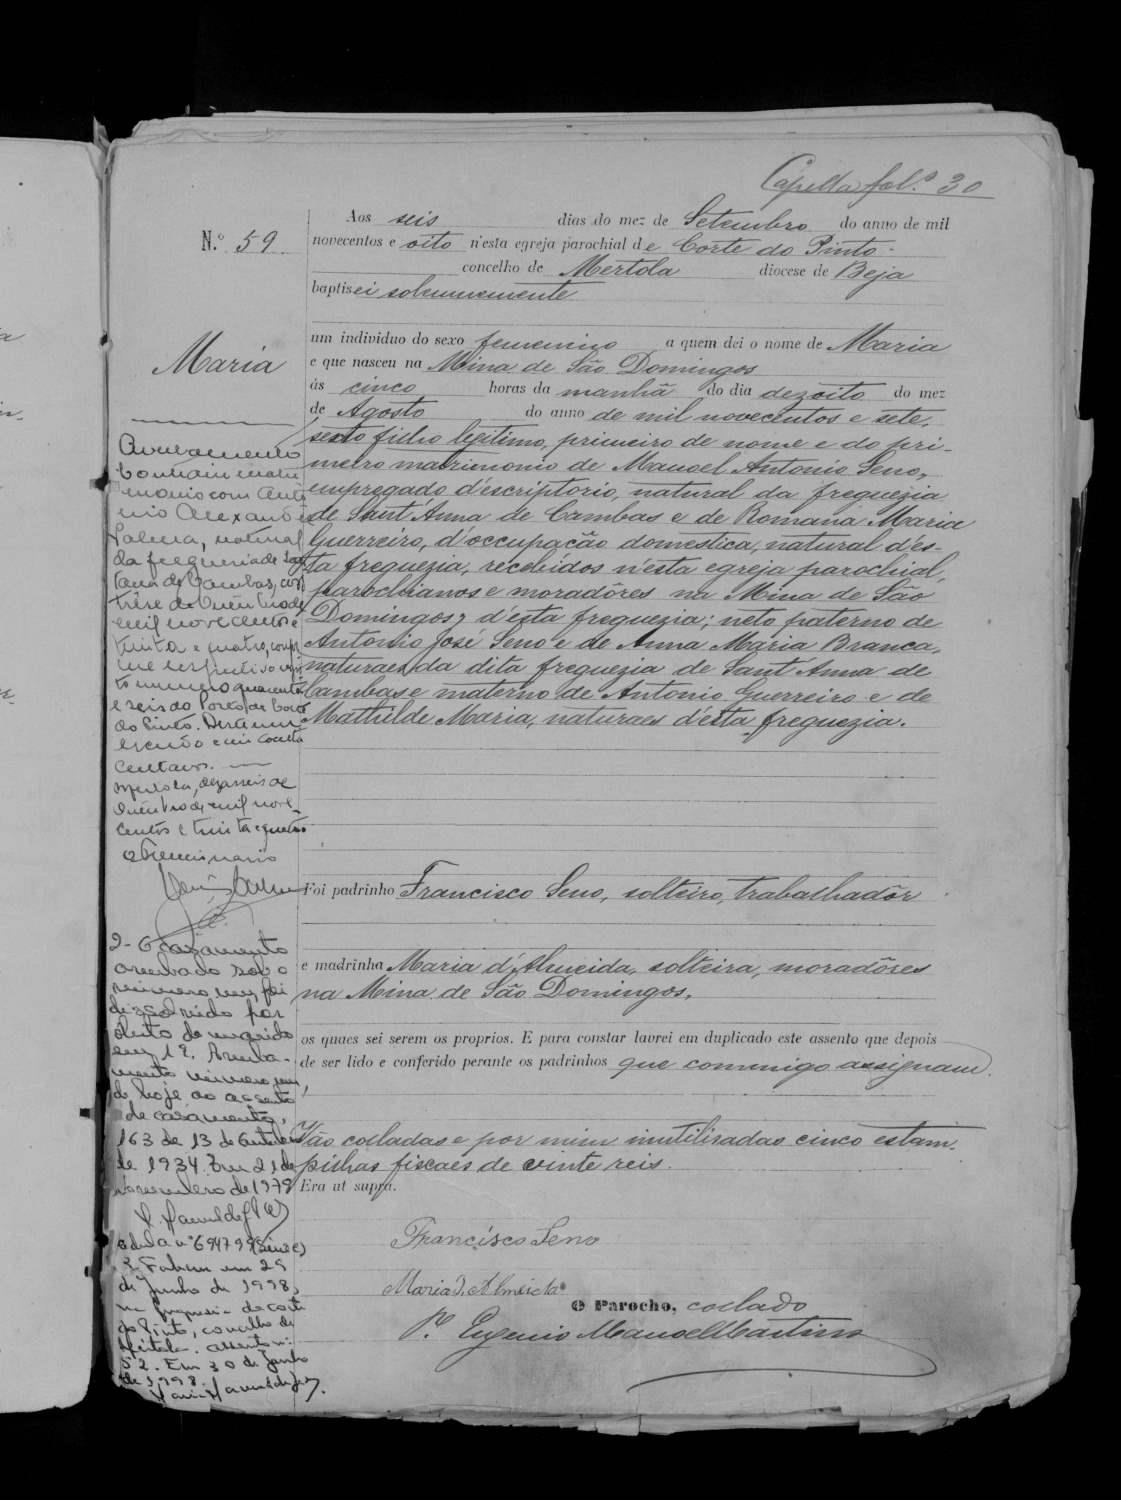 Capella fol.º 30
Aos seis dias do mez de Setembro do anno de mil
N.º 59
novecentos e oito n'esta egreja parochial de Corte do Pinto
concelho de Mertola diocese de Beja
baptisei solemnemente
um individuo do sexo femenino a quem dei o nome de Maria
Maria
e que nasceu na Mina de São Domingos
ás cinco horas da manhã do dia dezoito do mez
de Agosto do anno de mil novecentos e sete,
sexto filho legitimo, primeiro de nome e do pri-
meiro matrimonio de Manoel Antonio Seno,
empregado d'escriptorio, natural da freguezia
de Sant'Anna de Cambas e de Romana Maria
Guerreiro, d'occupação domestica, natural d'es-
ta freguezia, recebidos n'esta egreja parochial,
parochianos e moradôres na Mina de São
Domingos, d'esta freguezia; neto paterno de
Antonio José Seno e de Anna Maria Branca,
naturaes da dita freguezia de Sant'Anna de
Cambas e materno de Antonio Guerreiro e de
Mathilde Maria, naturaes d'esta freguezia.
Foi padrinho Francisco Seno, solteiro, trabalhadôr
e madrinha Maria d'Almeida, solteira, moradôres
na Mina de São Domingos,
os quaes sei serem os proprios. E para constar lavrei em duplicado este assento que depois
de ser lido e conferido perante os padrinhos que commigo assignam.
Vão colladas e por mim inutilisadas cinco estam-
pilhas fiscaes de vinte reis.
Era ut supra.
Francisco Seno
Maria d'Almeida
O Parocho, collado
P.e Eugenio Manoel Martins
Averbamento
Contraiu matri
monio com Antó
nio Alexandre
Palma, natural
da freguezia de San
tana de Cambas, em
treze de Outubro de
mil novecentos e
trinta e quatro, confor
me
numero quarenta
e seis do Posto de Corte
do Pinto.
escudo e cincoenta
centavos.
Mertola, dezasseis de
Outubro de mil nove-
centos e trinta e quatro
O Funcionario
2- O casamento
averbado sob o
numero um, foi
dissolvido por
óbito do marido
Averba-
mento numero um
de hoje ao assento
de casamento,
163 de 13 de Outubro
de 1934. Em 21 de
Novembro de 1979
3. Faleceu em 29
de Junho de 1998,
na freguesia de Corte
do Pinto, concelho de
Mértola. Assento nº
52. Em 30 de Junho
de 1998.